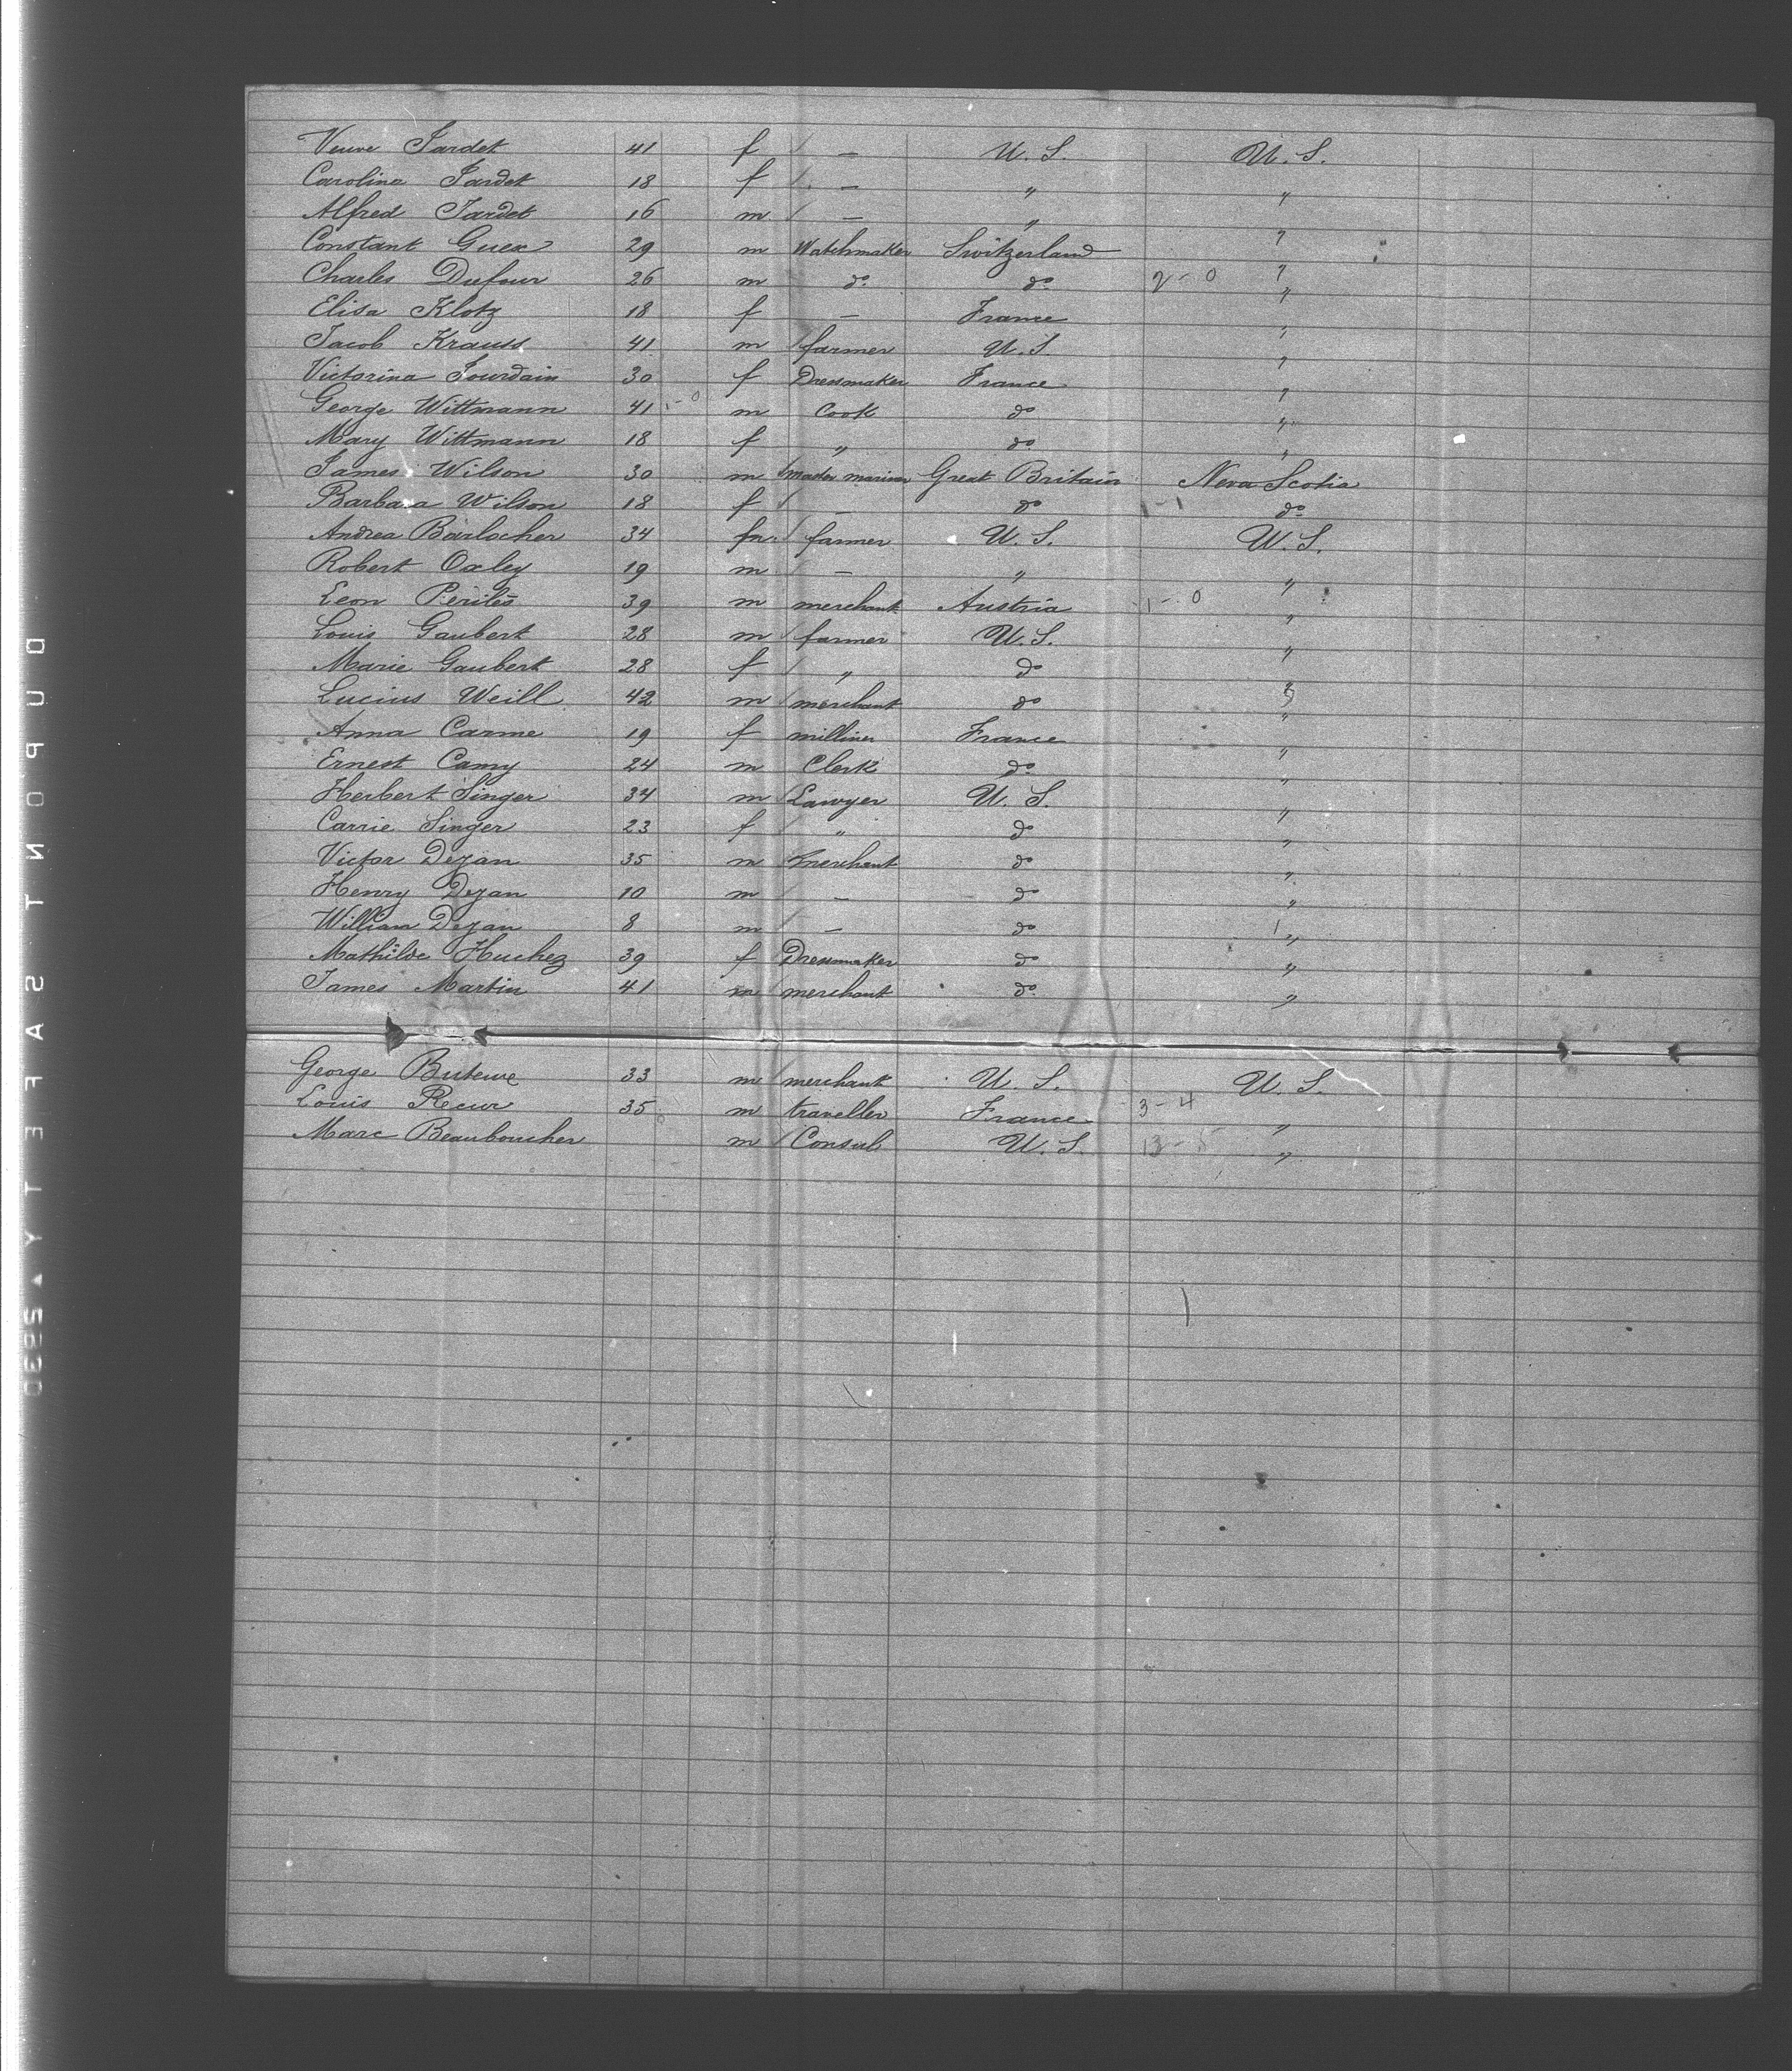 Veuve Jardet 41 f — U. S. U. S.
Carolina Jardet 18 f — " "
Alfred Jardet 16 m — " "
Constant Guex 29 m Watchmaker Switzerland "
Charles Dufour 26 m do do 2-0 "
Elisa Klotz 18 f — France "
Jacob Krauss 41 m farmer U. S. "
Victorina Jourdain 30 f Dressmaker France "
George Wittmann 41 1-0 m Cook do "
Mary Wittmann 18 f " do "
James Wilson 30 m master mariner Great Britain Nova Scotia
Barbara Wilson 18 f — do 1-1 do
Andrea Barlocher 34 m farmer U. S. U. S.
Robert Oxley 19 m — " "
Leon Perilés 39 m merchant Austria 1-0 "
Louis Gaubert 28 m farmer U. S. "
Marie Gaubert 28 f " do "
Lucius Weill 42 m merchant do "
Anna Carme 19 f milliner France "
Ernest Camy 24 m Clerk do "
Herbert Singer 34 m Lawyer U. S. "
Carrie Singer 23 f " do "
Victor Dejan 35 m merchant do "
Henry Dejan 10 m — do "
William Dejan 8 m — do "
Mathilde Huchez 39 f Dressmaker do "
James Martin 41 m merchant do "
George 33 m merchant U. S. U. S.
Louis 35 m traveller France 3-4 "
Marc Beauboucher m Consul U. S. "
DUPONT SAFETY 5830